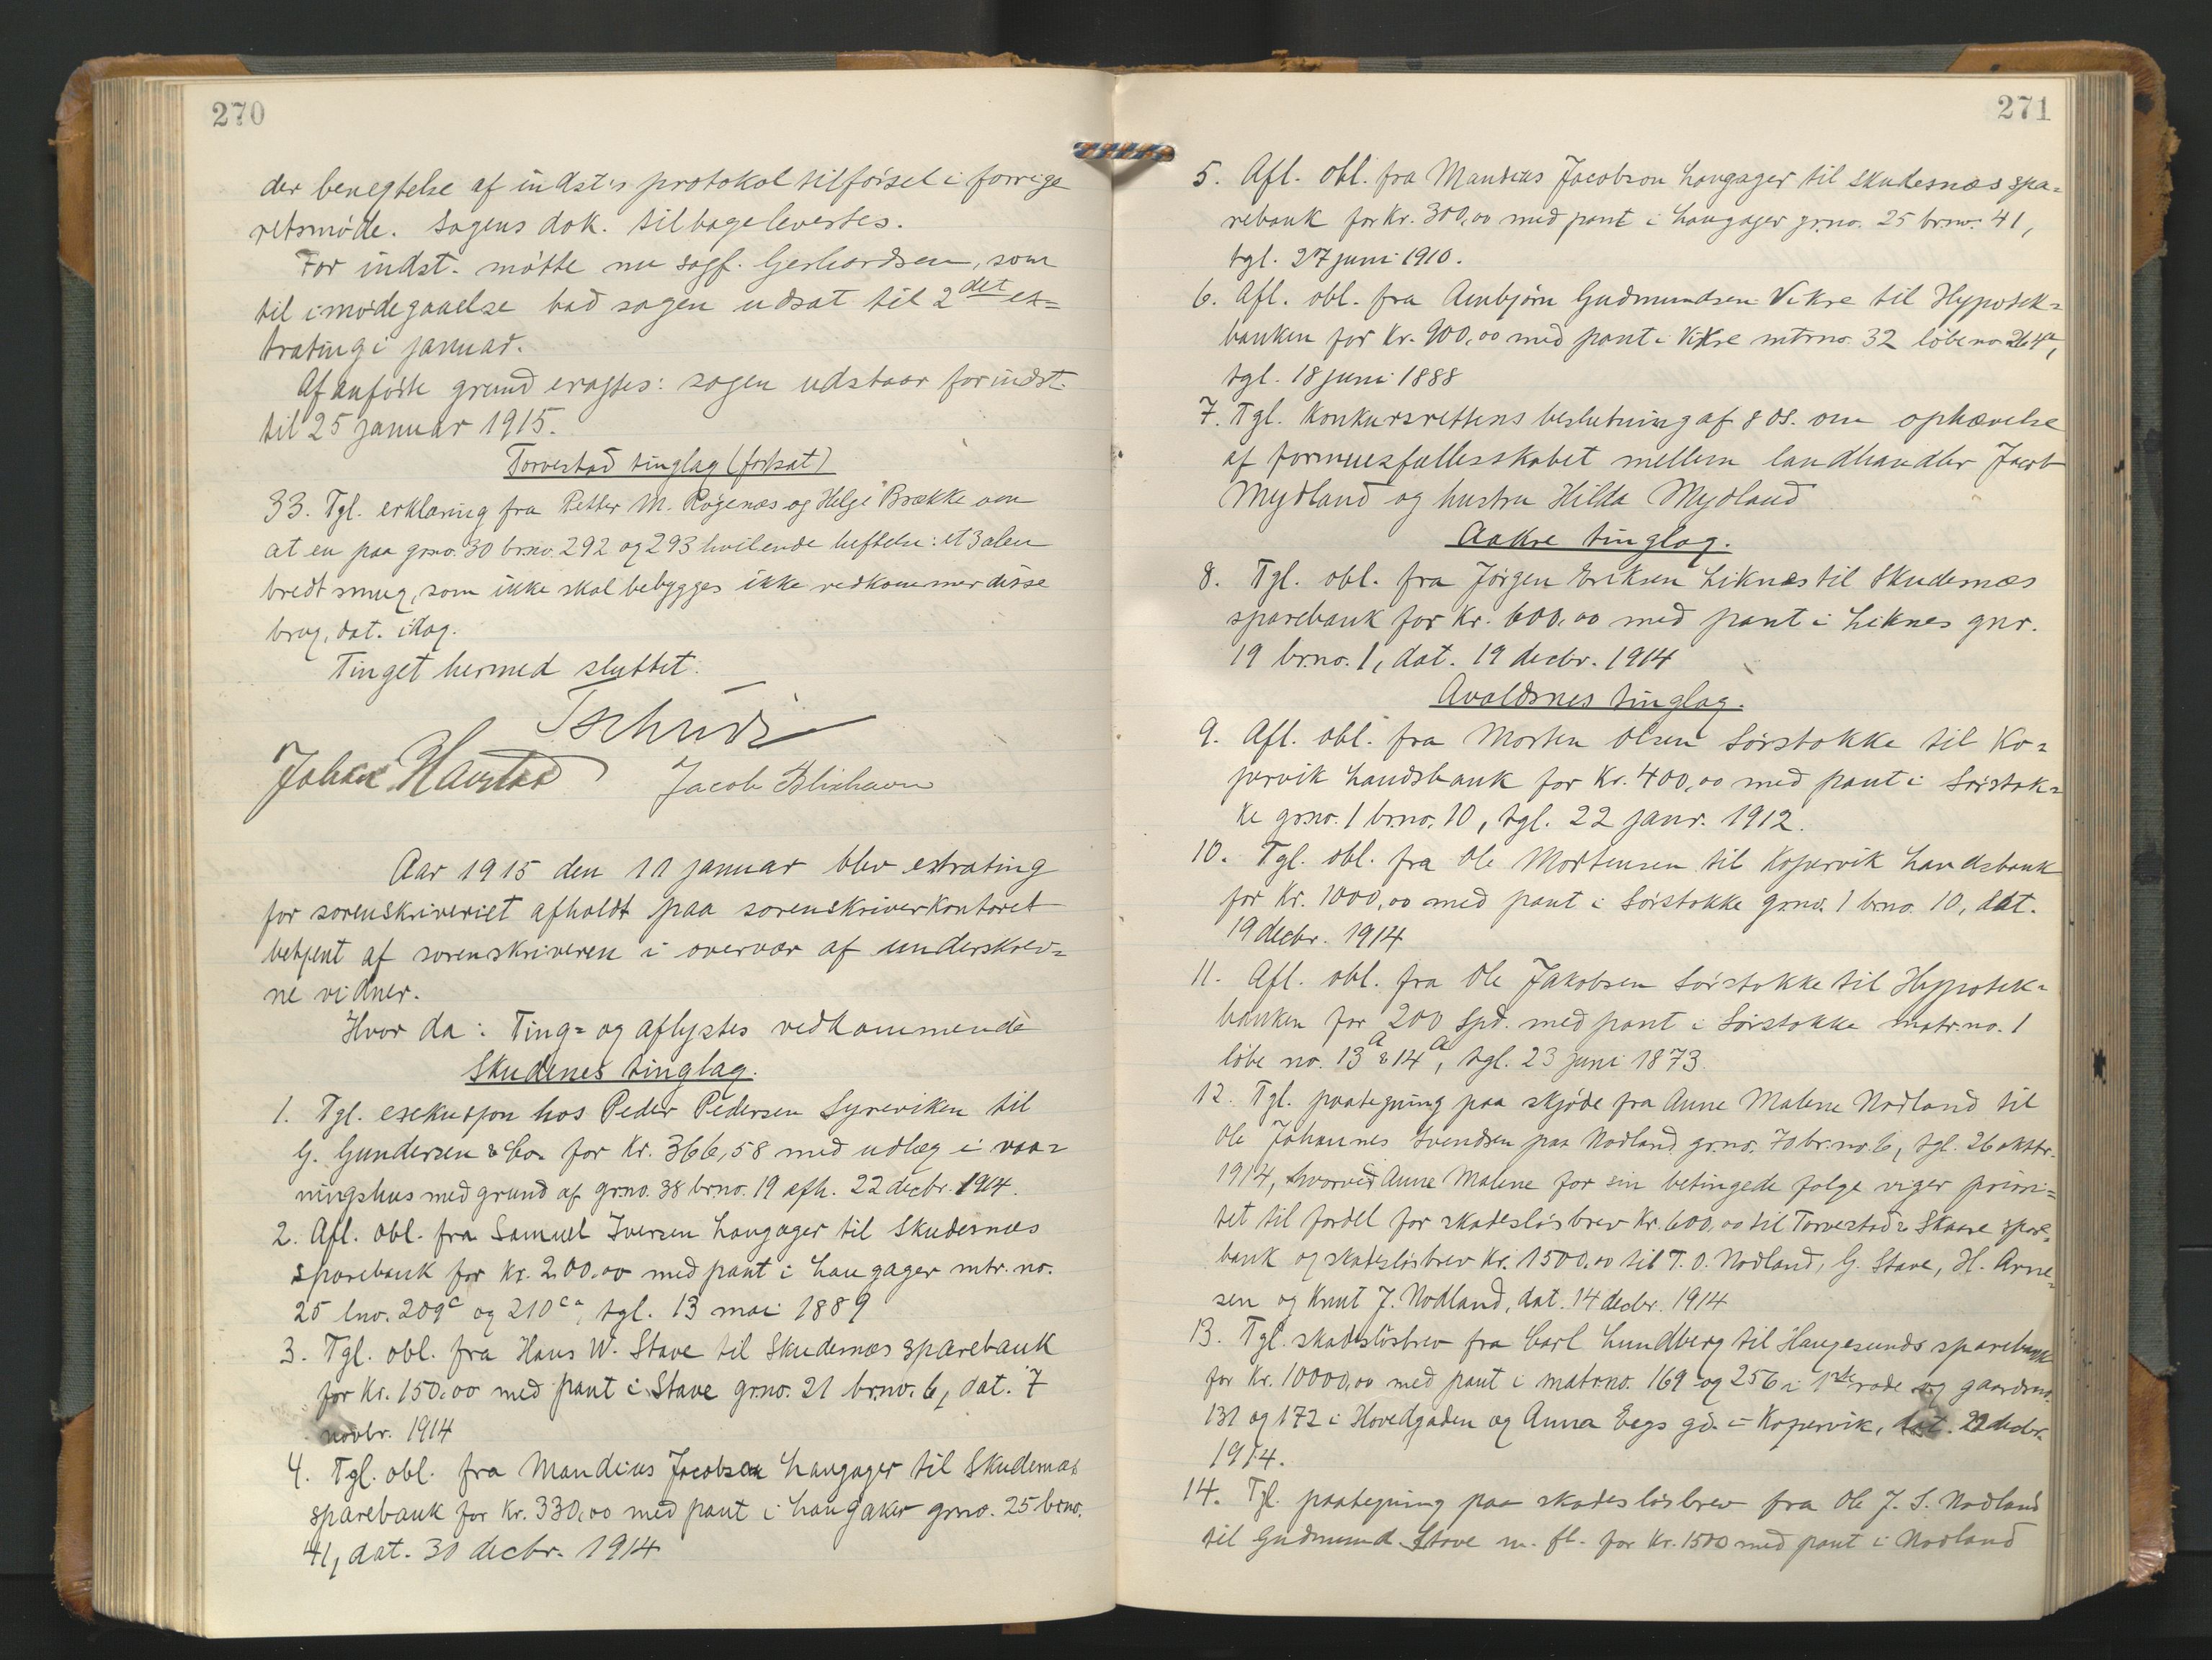 270
der benegtelse af indst's protokoltilførsel i forrige
retsmøde. Sagens dok. tilbagelevertes.
For indst. møtte nu sagf. Gerhardsen, som
til imødegaaelse bad sagen udsat til 2det ex=
trating i januar.
Af anførte grund eragtes: sagen udstaar for indst.
til 25 januar 1915.
Torvestad tinglag (fortsat)
33. Tgl. erklæring fra Petter M. Røgenæs og Helge Brække om
at en paa grno. 30 brno. 292 og 293 hvilende heftelse: et 3 alen
bredt smug, som ikke skal bebygges ikke vedkommer disse
brug, dat. idag.
Tinget hermed sluttet.
Tschudi
Johan Havstad Jacob Blixhavn
Aar 1915 den 11 januar blev extrating
for sorenskriveriet afholdt paa sorenskriverkontoret
betjent af sorenskriveren i overvær af underskrev=
ne vidner.
Hvor da: Ting= og aflystes vedkommende
Skudenes tinglag.
1. Tgl. exekusjon hos Peder Pedersen Syreviken til
G. Gundersen & Co. for Kr. 366,58 med udlæg i vaa=
ningshus med grund af grno. 38 brno. 19 afh. 22 decbr. 1914.
2. Afl. obl. fra Samuel Iversen Langager til Skudesnæs
sparebank for Kr. 200.00 med pant i Langager mtr. no.
25 lno. 209c og 210ca, tgl. 13 mai 1889
3. Tgl. obl. fra Hans W. Stave til Skudesnæs sparebank
for Kr. 150.00 med pant i Stave grno. 21 brno. 6, dat. 7
novbr. 1914
4. Tgl. obl. fra Mandius Jacobsen Langager til Skudesnæs
sparebank for Kr. 330,00 med pant i Langaker grno. 25 brno.
41, dat. 30 decbr. 1914
271
5. Afl. obl. fra Mandius Jacobson Langager til Skudesnæs spa=
rebank for Kr. 300,00 med pant i Langager grno. 25 brno. 41,
tgl. 27 juni 1910.
6. Afl. obl. fra Arnbjørn Gudmundsen Vikre til Hypotek=
banken for Kr. 900,00 med pant i Vikre mtrno. 32 løbeno. 264a,
tgl. 18 juni 1888
7. Tgl. Konkursrettens beslutning af 8 ds. om ophævelse
af formuesfællesskabet mellem landhandler Jacob
Mydland og hustru Hilda Mydland
Aakre tinglag.
8. Tgl. obl. fra Jørgen Eriksen Liknes til Skudesnæs
sparebank for Kr. 600,00 med pant i Liknes gnr.
19 brno. 1, dat. 19 decbr. 1914
Avaldsnes tinglag.
9. Afl. obl. fra Morten Olsen Sørstokke til Ko=
pervik Landsbank for Kr. 400,00 med pant i Sørstok=
ke grno. 1 brno. 10, tgl. 22 janr. 1912.
10. Tgl. obl. fra Ole Mortensen til Kopervik Landsbank
for Kr. 1000,00 med pant i Sørstokke grno. 1 brno. 10, dat.
19 decbr. 1914
11. Afl. obl. fra Ole Jakobsen Sørstokke til Hypotek=
banken for 200 Spd. med pant i Sørstokke matr.no. 1
løbe no. 13a & 14a, tgl. 23 juni 1873.
12. Tgl. paategning paa skjøde fra Anne Malene Nodland til
Ole Johannes Svendsen paa Nodland grno. 70 br.no. 6, tgl. 26 oktbr.
1914, hvorved Anne Malene for sin betingede følge viger priori=
tet til fordel for skadesløsbrev Kr. 600,00 til Torvestad & Skaare spare=
bank og skadesløsbrev Kr. 1500.00 til T. O. Nodland, G. Stave, H. Arne=
sen og Knut J. Nodland, dat. 14 decbr. 1914
13. Tgl. skadesløsbrev fra Carl Lundberg til Haugesunds sparebank
for Kr. 10000,00 med pant i matrno. 169 og 256 i 1ste rode og gaardsno.
131 og 172 i Hovedgaden og Anna Eegs gd. i Kopervik, dat. 22 decbr.
1914.
14. Tgl. paategning paa skadesløsbrev fra Ole J. S. Nodland
til Gudmund Stave m. fl. for Kr. 1500 med pant i Nodland